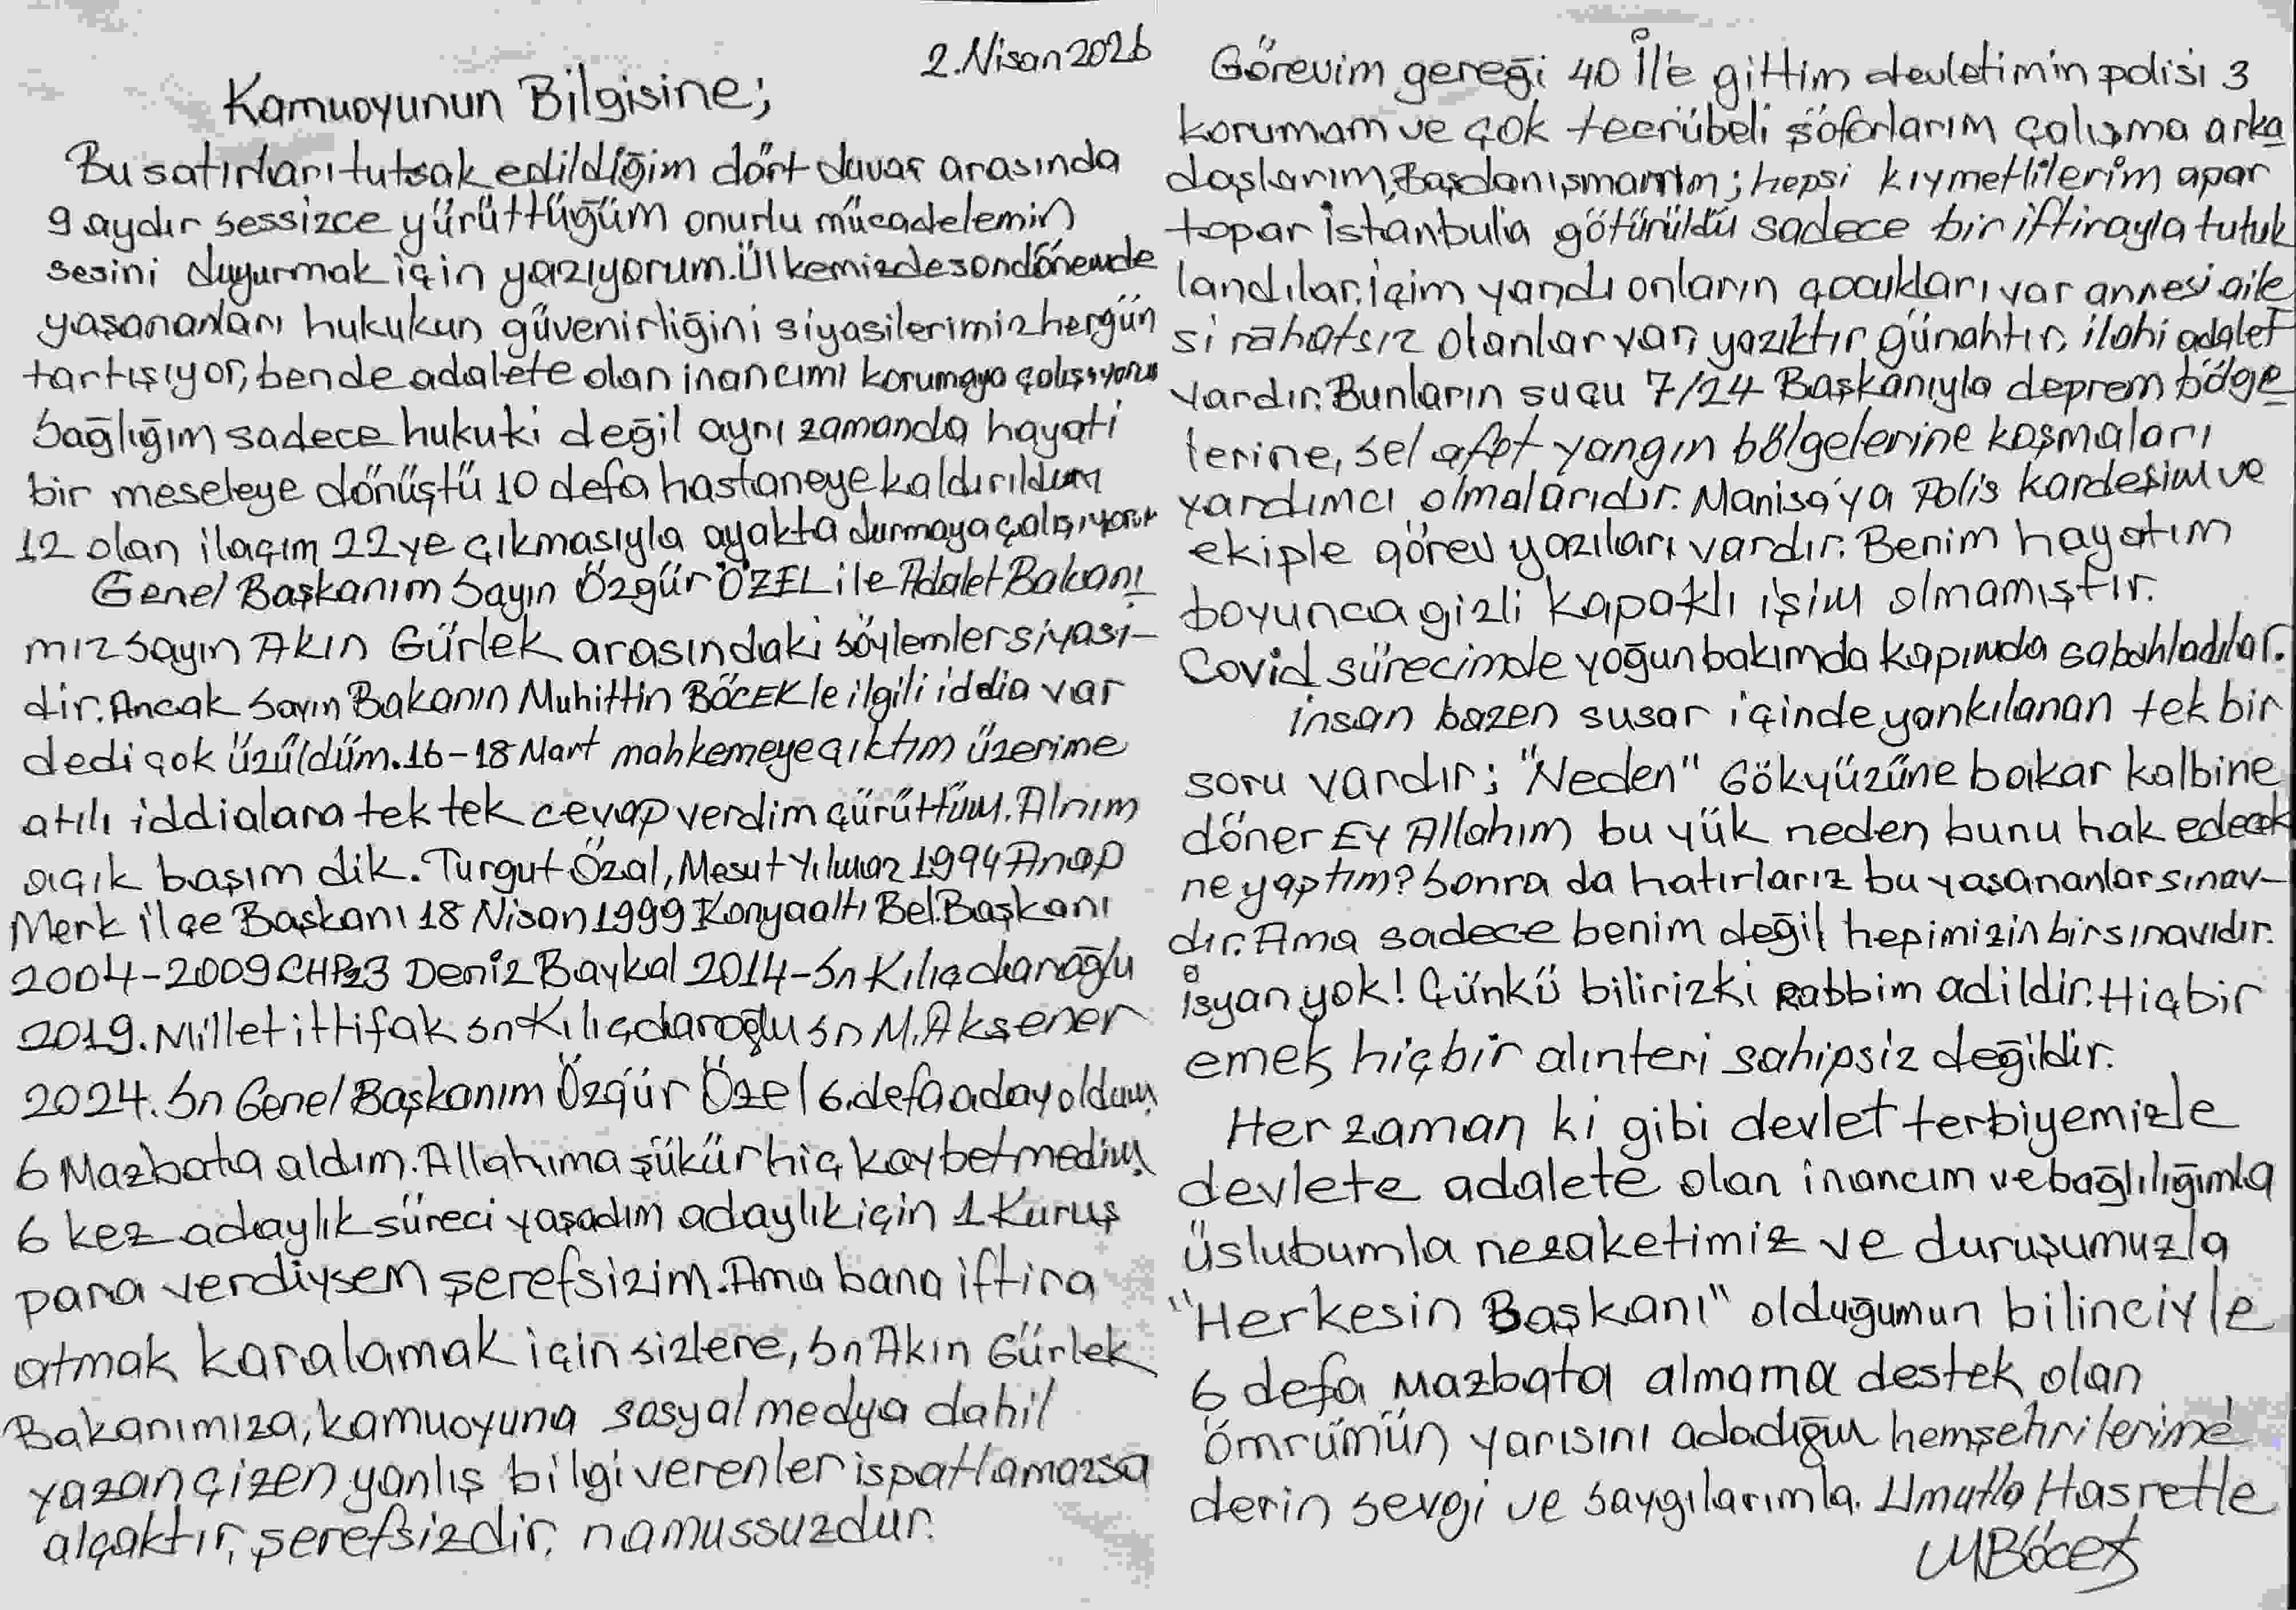 2.Nisan 2026
Kamuoyunun Bilgisine;
Bu satırları tutsak edildiğim dört duvar arasında
9 aydır sessizce yürüttüğüm onurlu mücadelemin
sesini duyurmak için yazıyorum. Ülkemizde son dönemde
yaşananları hukukun güvenirliğini siyasilerimiz hergün
tartışıyor, bende adalete olan inancımı korumaya çalışıyorum
Sağlığım sadece hukuki değil aynı zamanda hayati
bir meseleye dönüştü 10 defa hastaneye kaldırıldım
12 olan ilaçım 22 ye çıkmasıyla ayakta durmaya çalışıyorum
Genel Başkanım Sayın Özgür ÖZEL ile Adalet Bakanı
mız Sayın Akın Gürlek arasındaki söylemler siyasi-
dir. Ancak Sayın Bakanın Muhittin BÖCEK le ilgili iddia var
dedi çok üzüldüm. 16-18 Mart mahkemeye çıktım üzerime
atılı iddialara tek tek cevap verdim çürüttüm. Alnım
açık başım dik. Turgut Özal, Mesut Yılmaz 1994 Anap
Merk ilçe Başkanı 18 Nisan 1999 Konyaaltı Bel. Başkanı
2004-2009 CHP Deniz Baykal 2014-Sn Kılıçdaroğlu
2019. Millet ittifak Sn Kılıçdaroğlu Sn M. Akşener
2024. Sn Genel Başkanım Özgür Özel 6. defa aday oldum
6 Mazbata aldım. Allahıma şükür hiç kaybetmedim
6 kez adaylık süreci yaşadım adaylık için 1 Kuruş
para verdiysem şerefsizim. Ama bana iftira
atmak karalamak için sizlere, Sn Akın Gürlek
Bakanımıza, kamuoyuna sosyal medya dahil
yazan çizen yanlış bilgi verenler ispatlamazsa
alçaktır, şerefsizdir, namussuzdur.
Görevim gereği 40 İl'e gittim devletimin polisi 3
korumam ve çok tecrübeli şöforlarım çalışma arka
daşlarım, Başdanışmanım; hepsi kıymetlilerim apar
topar İstanbul'a götürüldü sadece bir iftirayla tutuk
landılar, içim yandı onların çocukları var annesi aile
si rahatsız olanlar var, yazıktır, günahtır, ilahi adalet
vardır. Bunların suçu 7/24 Başkanıyla deprem bölge
lerine, sel afet yangın bölgelerine koşmaları
yardımcı olmalarıdır. Manisa'ya Polis kardeşim ve
ekiple görev yazıları vardır. Benim hayatım
boyunca gizli kapaklı işim olmamıştır.
Covid sürecimde yoğun bakımda kapımda sabahladılar.
insan bazen susar içinde yankılanan tek bir
soru vardır; "Neden" Gökyüzüne bakar kalbine
döner Ey Allahım bu yük neden bunu hak edecek
ne yaptım? Sonra da hatırlarız bu yaşananlar sınav-
dır. Ama sadece benim değil hepimizin bir sınavıdır.
isyan yok! Çünkü bilirizki Rabbim adildir. Hiçbir
emek hiçbir alınteri sahipsiz değildir.
Her zaman ki gibi devlet terbiyemizle
devlete adalete olan inancım ve bağlılığımla
üslubumla nezaketimiz ve duruşumuzla
"Herkesin Başkanı" olduğumun bilinciyle
6 defa Mazbata almama destek olan
ömrümün yarısını adadığım hemşehrilerime
derin sevgi ve saygılarımla. Umutla Hasretle
MBöcek